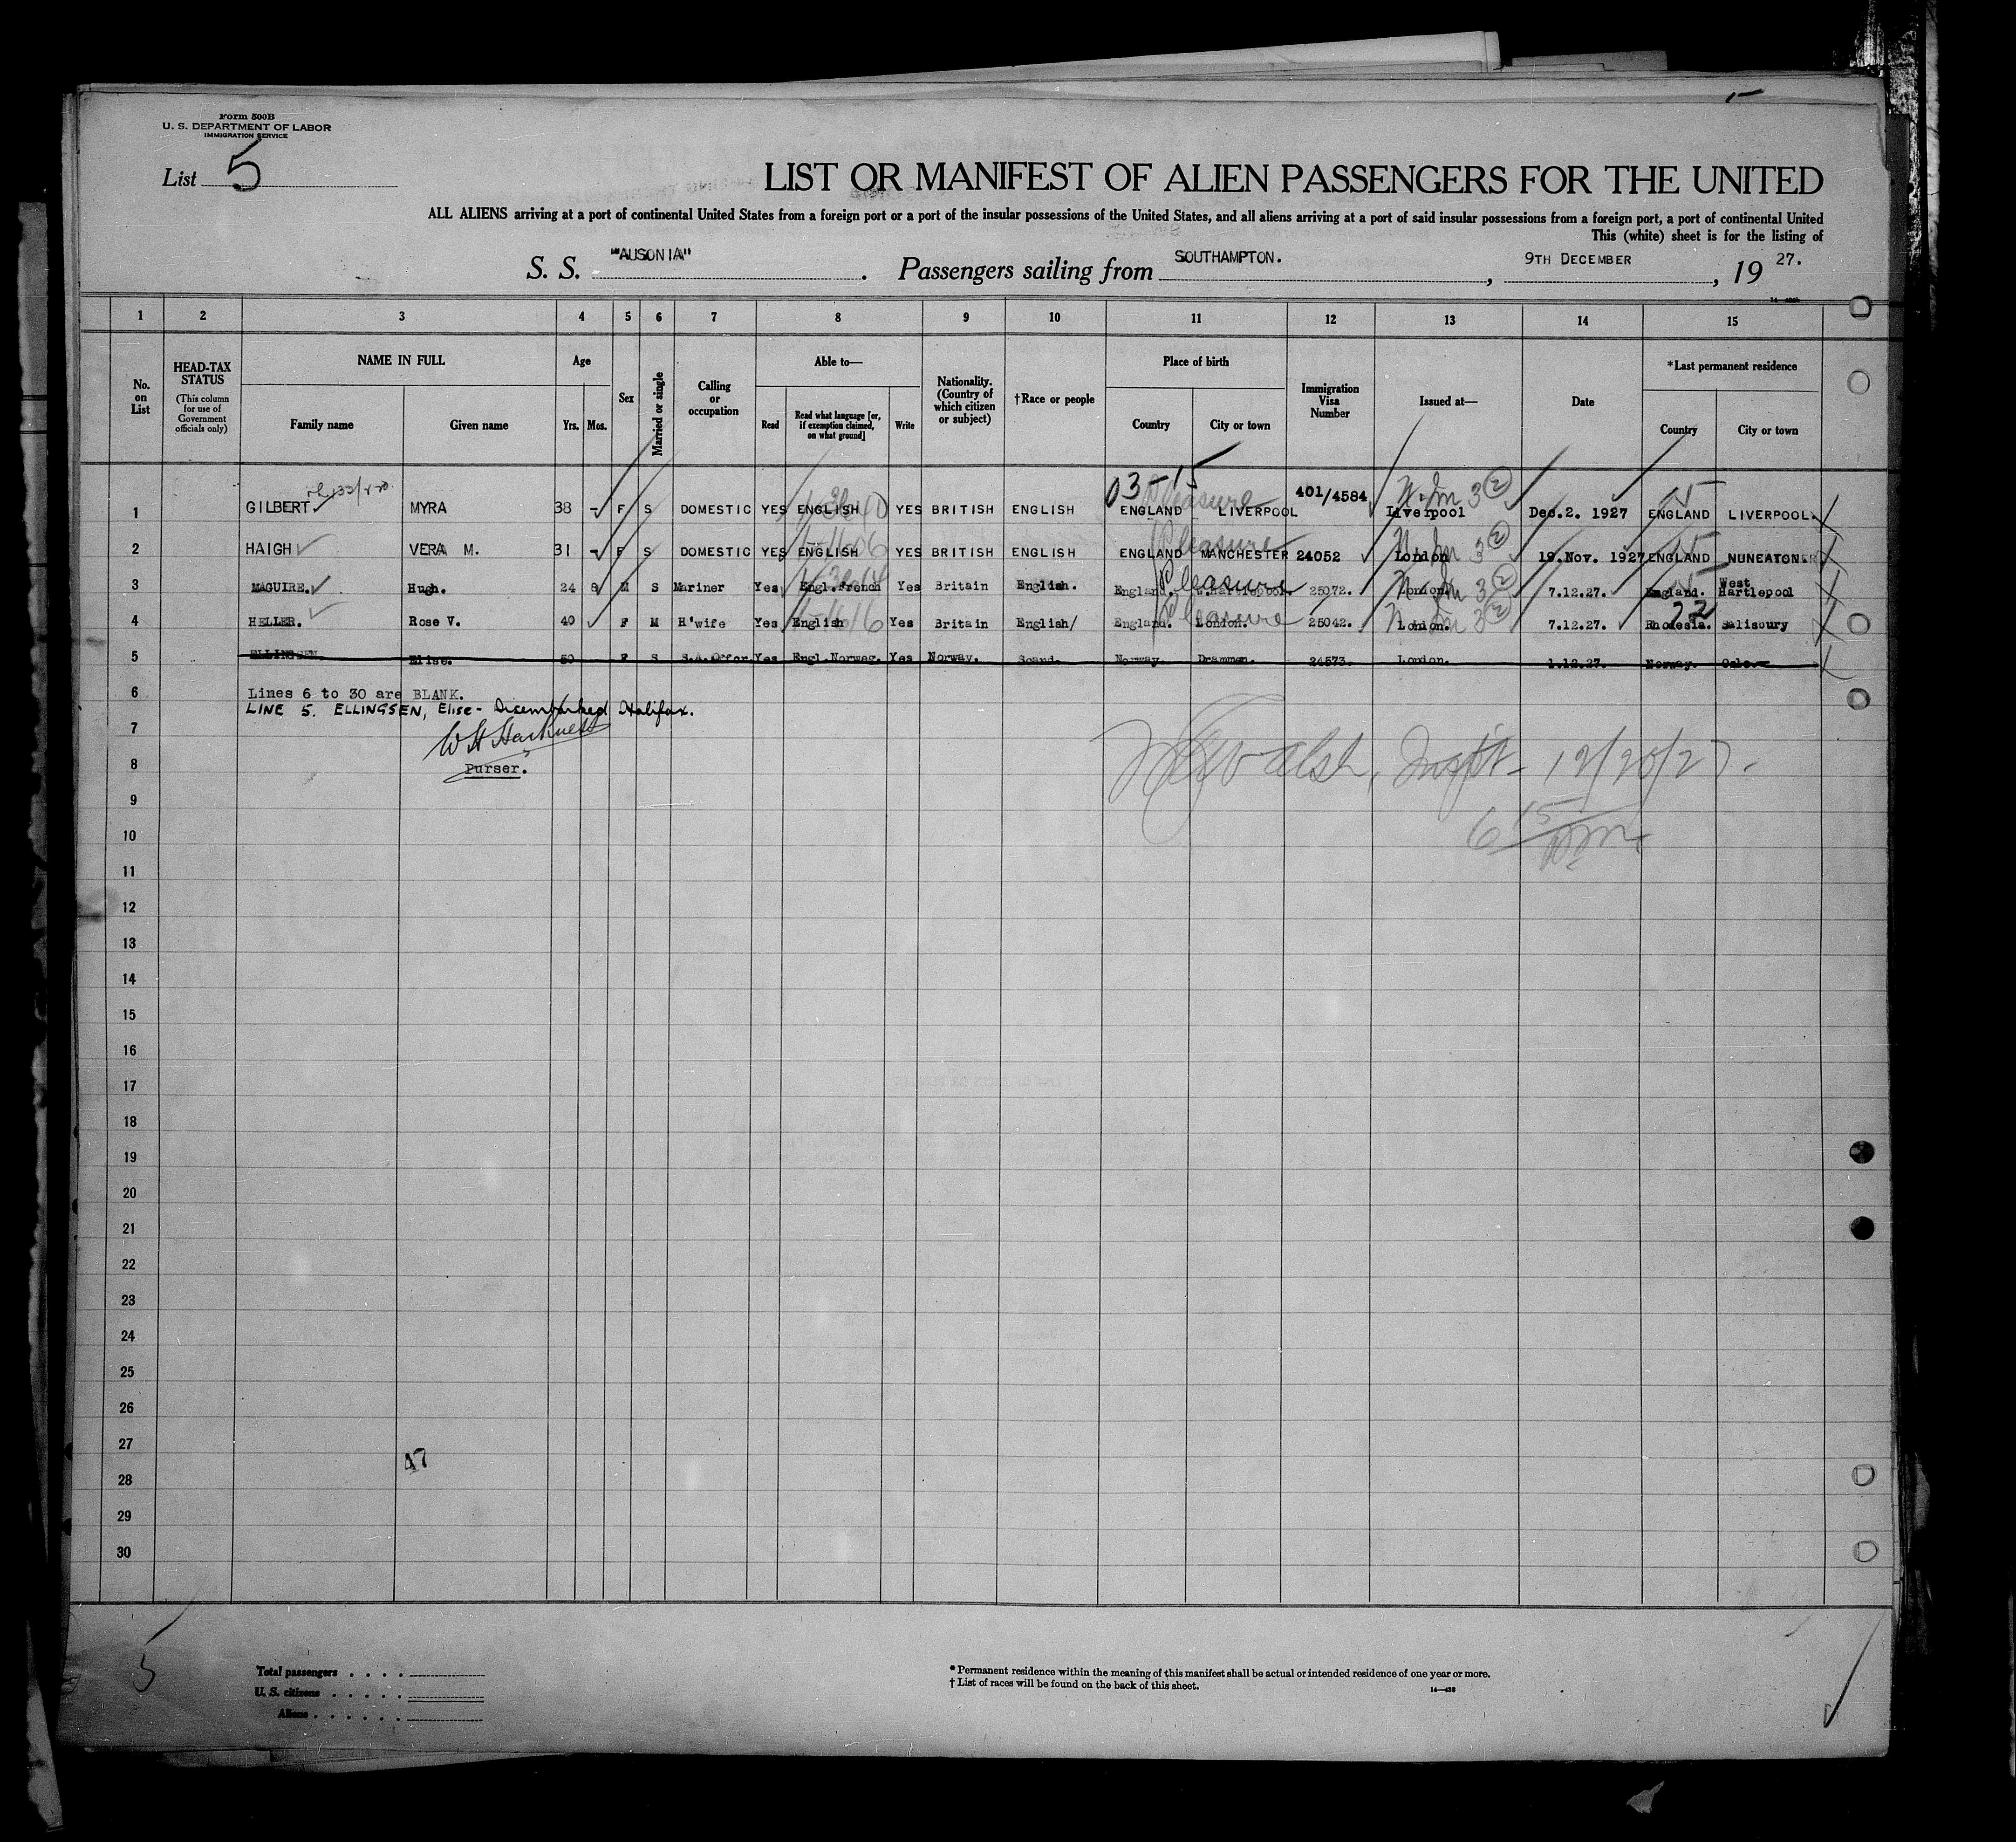 Form 500B
U. S. DEPARTMENT OF LABOR
IMMIGRATION SERVICE
List 5
LIST OR MANIFEST OF ALIEN PASSENGERS FOR THE UNITED
ALL ALIENS arriving at a port of continental United States from a foreign port or a port of the insular possessions of the United States, and all aliens arriving at a port of said insular possessions from a foreign port, a port of continental United
This (white) sheet is for the listing of
S. S. "AUSONIA". Passengers sailing from SOUTHAMPTON., 9TH DECEMBER, 19 27.
1 2 3 4 5 6 7 8 9 10 11 12 13 14 15
No. on List
HEAD-TAX STATUS (This column for use of Government officials only)
NAME IN FULL
Family name Given name
Age
Yrs. Mos.
Sex
Married or single
Calling or occupation
Able to—
Read Read what language [or, if exemption claimed, on what ground] Write
Nationality. (Country of which citizen or subject)
†Race or people
Place of birth
Country City or town
Immigration Visa Number
Issued at—
Date
*Last permanent residence
Country City or town
03-15
1 GILBERT. MYRA 38 - F S DOMESTIC YES ENGLISH YES BRITISH ENGLISH ENGLAND LIVERPOOL 401/4584 Liverpool Dec.2. 1927 ENGLAND LIVERPOOL.
2 HAIGH VERA M. 31 - F S DOMESTIC YES ENGLISH YES BRITISH ENGLISH ENGLAND MANCHESTER 24052 London 19.Nov. 1927 ENGLAND NUNEATON.
3 MAGUIRE. Hugh. 24 8 M S Mariner Yes Engl.French Yes Britain English. England. W.Hartlepool. 25072. London. 7.12.27. England. West Hartlepool
Pleasure
4 HELLER. Rose V. 40 F M H'wife Yes English Yes Britain English/ England. London. 25042. London. 7.12.27. Rhodesia. Salisbury
Pleasure
22
5 ELLINGSEN. Elise. 50 F S S.A.Offcr Yes Engl.Norweg. Yes Norway. Scand. Norway. Drammen. 24573. London. 1.12.27. Norway. Oslo.
6 Lines 6 to 30 are BLANK.
LINE 5. ELLINGSEN, Elise - Disembarked Halifax.
7
8 Purser.
Walsh, Inspt - 12/20/27.
6 15 pm
9
10
11
12
13
14
15
16
17
18
19
20
21
22
23
24
25
26
27
47
28
29
30
5
Total passengers . . . .
U. S. citizens . . . . .
Aliens . . . . . .
* Permanent residence within the meaning of this manifest shall be actual or intended residence of one year or more.
† List of races will be found on the back of this sheet.
14—430